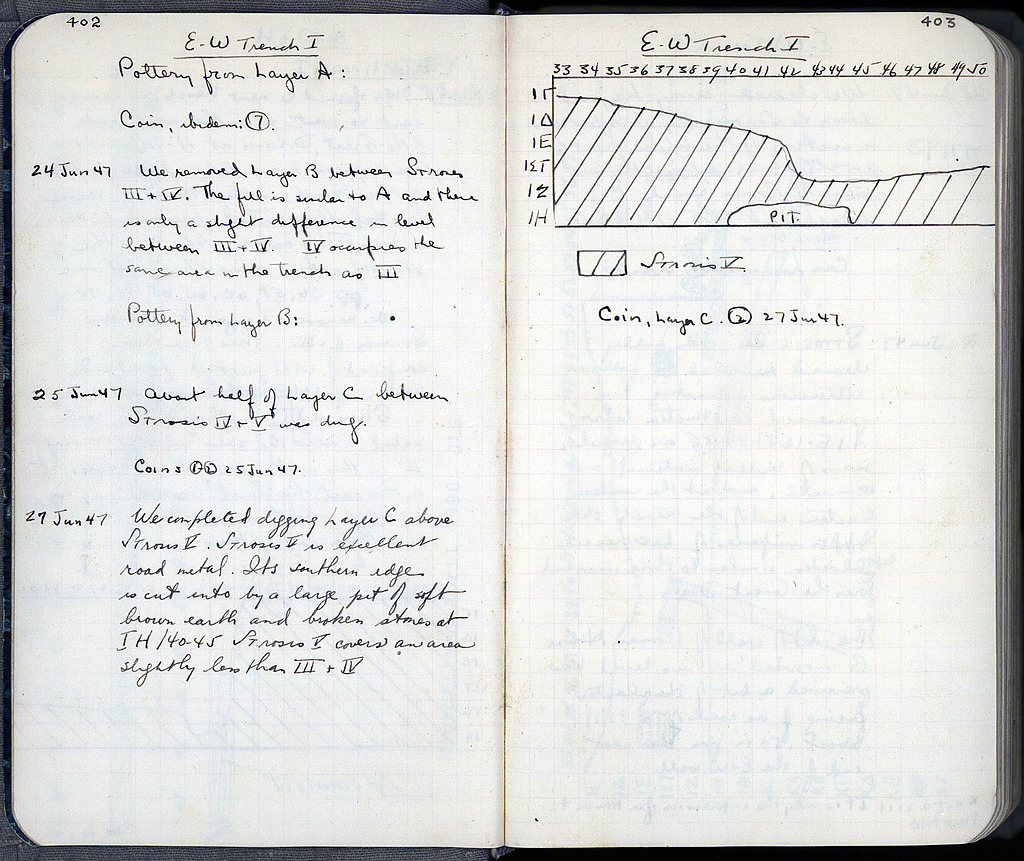 402
E-W Trench I
Pottery from Layer A:
Coin, ibidem: 7.
24 Jun 47 We removed Layer B between Stroses
III + IV. The fill is similar to A and there
is only a slight difference in level
between III + IV. IV occupies the
same area in the trench as III
Pottery from Layer B:
25 Jun 47 About half of Layer C between
Strosis IV + V was dug.
Coins 25 Jun 47.
27 Jun 47 We completed digging Layer C above
Strosis V. Strosis V is excellent
road metal. Its southern edge
is cut into by a large pit of soft
brown earth and broken stones at
IH/40-45 Strosis V covers an area
slightly less than III + IV
403
E-W Trench I
33 34 35 36 37 38 39 40 41 42 43 44 45 46 47 48 49 50
ΙΓ
ΙΔ
ΙΕ
ΙΣΤ
ΙΖ
ΙΗ
PIT.
Strosis V.
Coin, Layer C. 2 27 Jun 47.